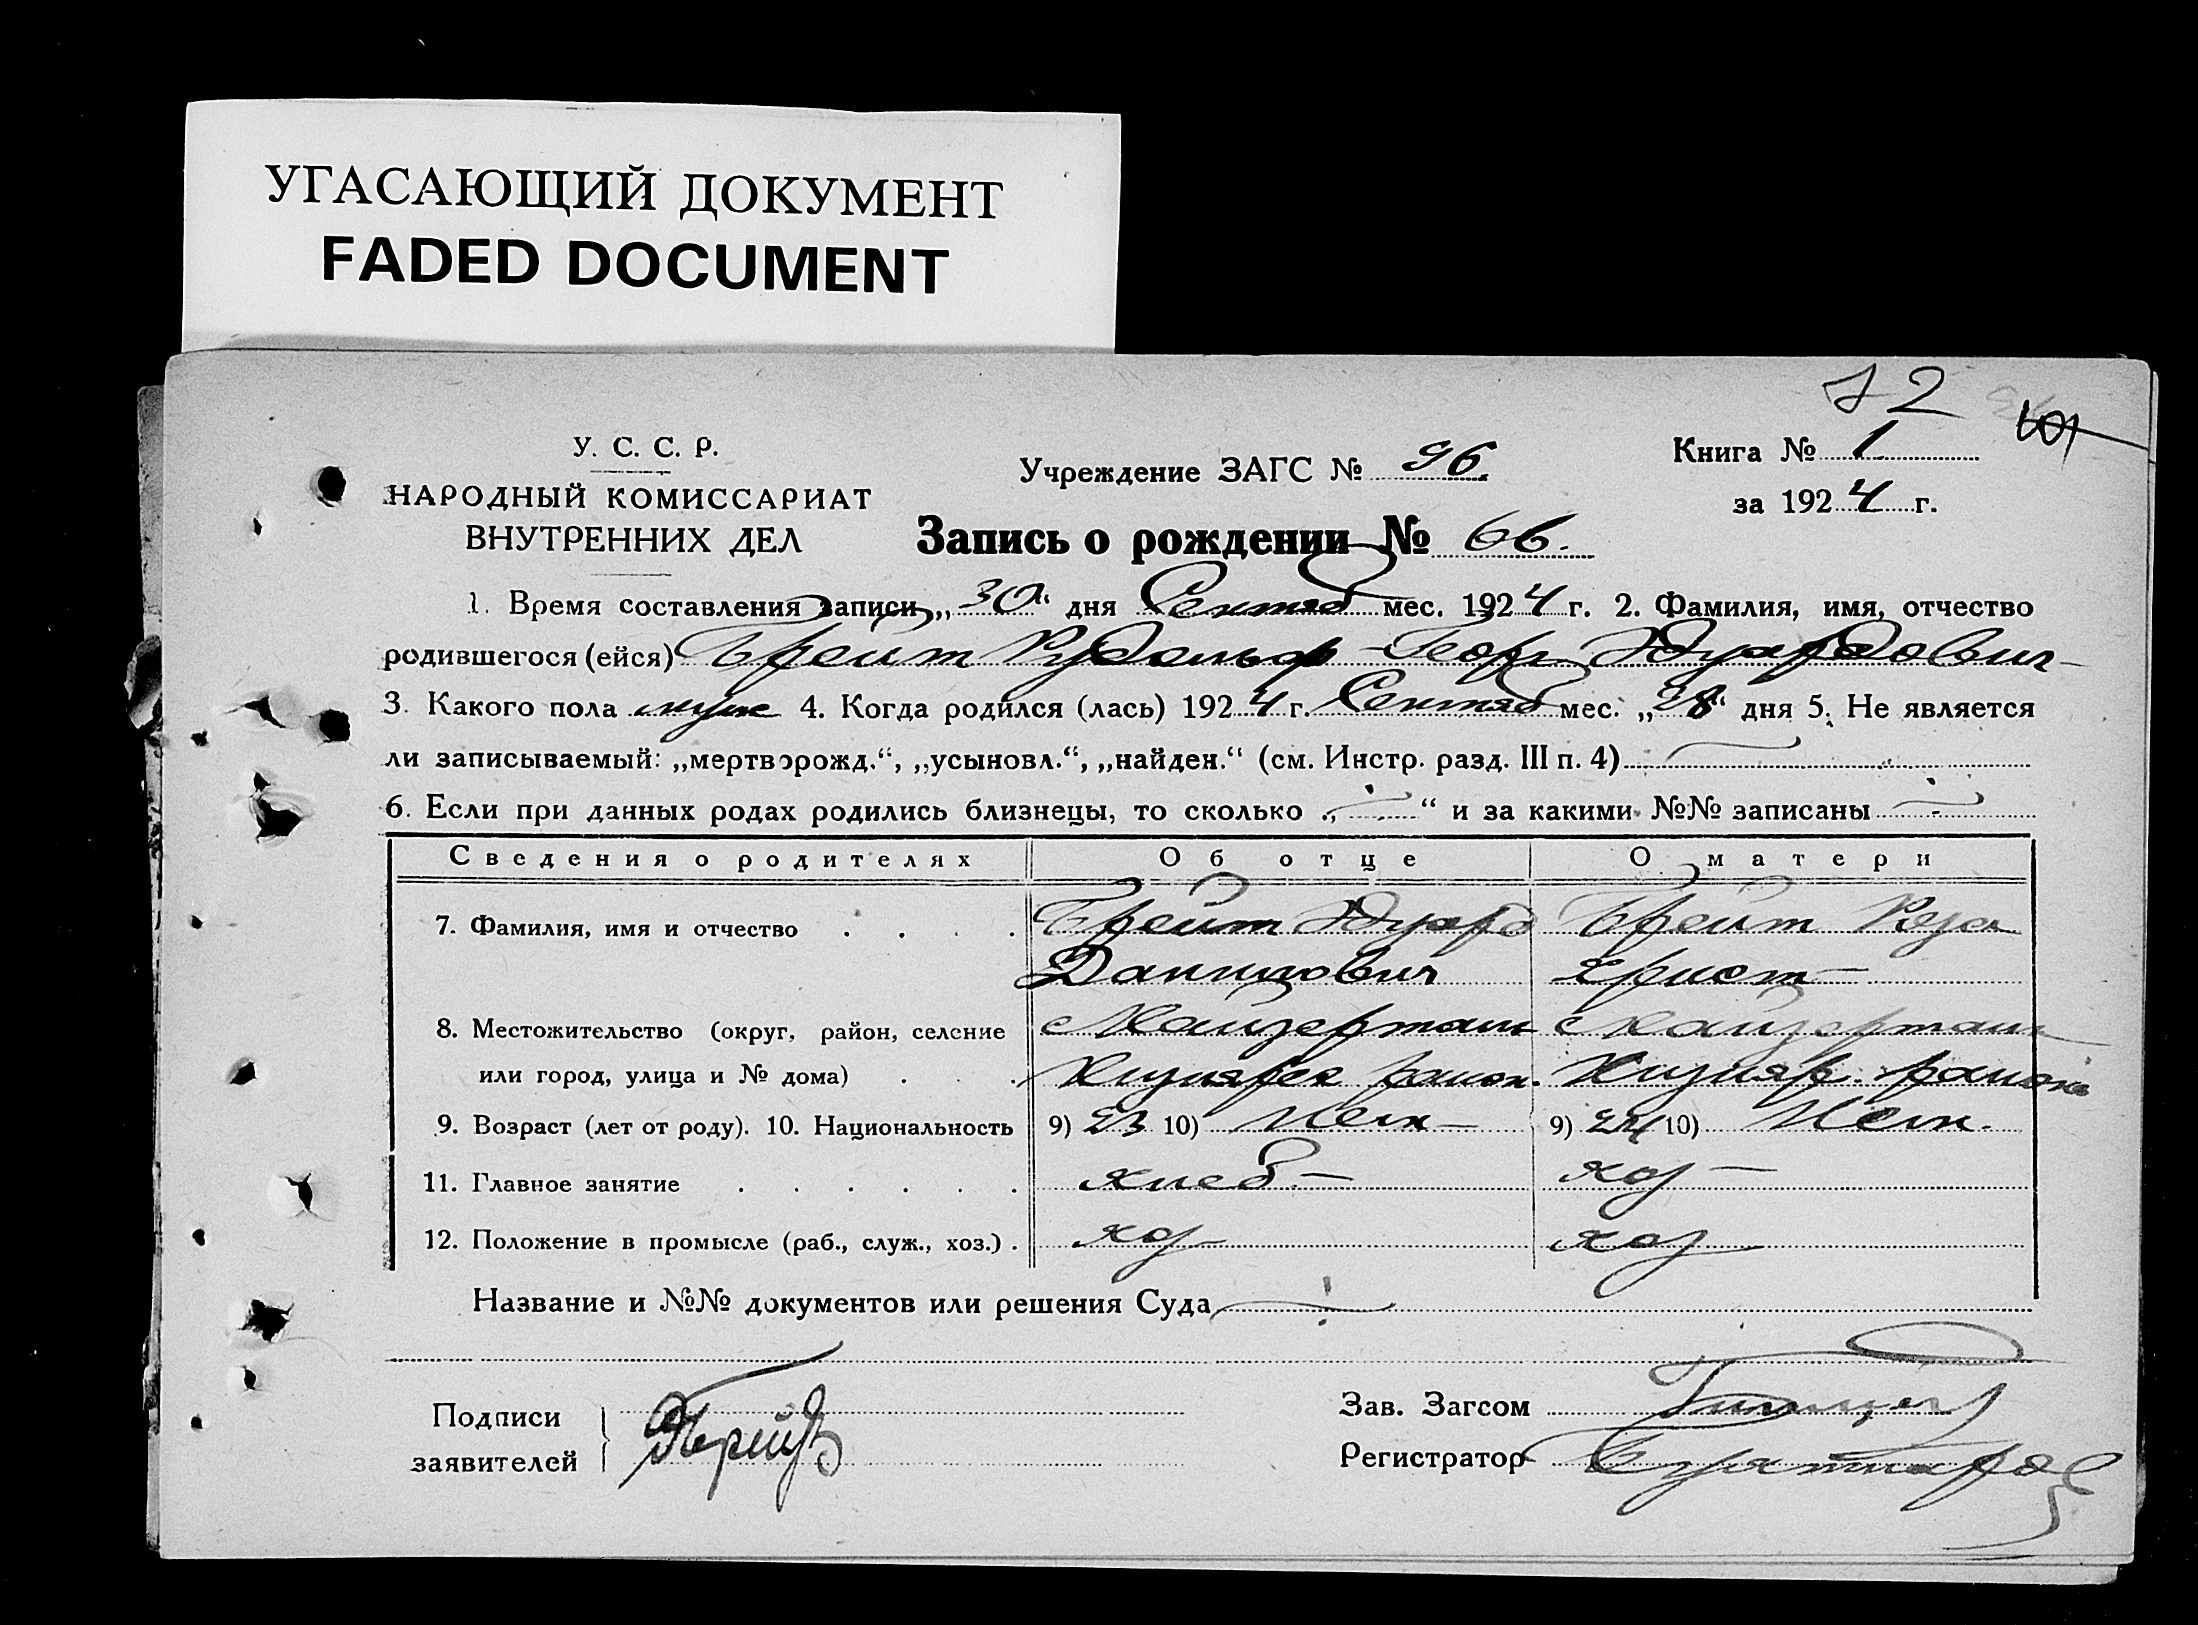 УГАСАЮЩИЙ ДОКУМЕНТ
FADED DOCUMENT
72
У. С. С. Р.
НАРОДНЫЙ КОМИССАРИАТ
ВНУТРЕННИХ ДЕЛ
Учреждение ЗАГС № 96.
Книга № 1
за 1924 г.
Запись о рождении № 66.
1. Время составления записи „30“ дня Сентяб мес. 1924 г. 2. Фамилия, имя, отчество
родившегося (ейся) Брейт Рудольф-Георг Эдуардович
3. Какого пола муж 4. Когда родился (лась) 1924 г. Сентяб мес. „28“ дня 5. Не является
ли записываемый: „мертворожд.“, „усыновл.“, „найден.“ (см. Инстр. разд. III п. 4)
6. Если при данных родах родились близнецы, то сколько „ “ и за какими №№ записаны
Сведения о родителях Об отце О матери
7. Фамилия, имя и отчество . . . . Брейт Эдуард Брейт Роза
Данилович Христ-
8. Местожительство (округ, район, селение с Кайзерталь с Кайзерталь
или город, улица и № дома) . . .
район. района
9. Возраст (лет от роду). 10. Национальность 9) 23 10) Нем- 9) 24 10) Нем.
11. Главное занятие . . . . . . хлеб- хоз-
12. Положение в промысле (раб., служ., хоз.) . хоз- хоз
Название и №№ документов или решения Суда
Подписи
заявителей
Брейт
Зав. Загсом
Регистратор